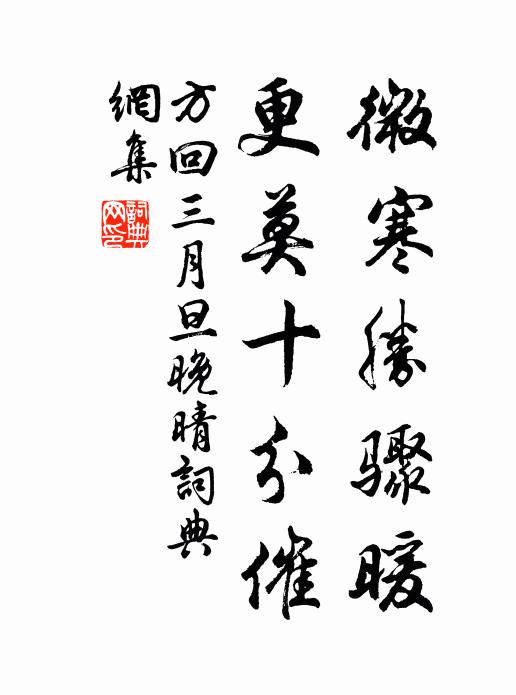 微寒勝驟暖
更莫十分催
方回三月旦晚晴詞典
網集
詞典
网印